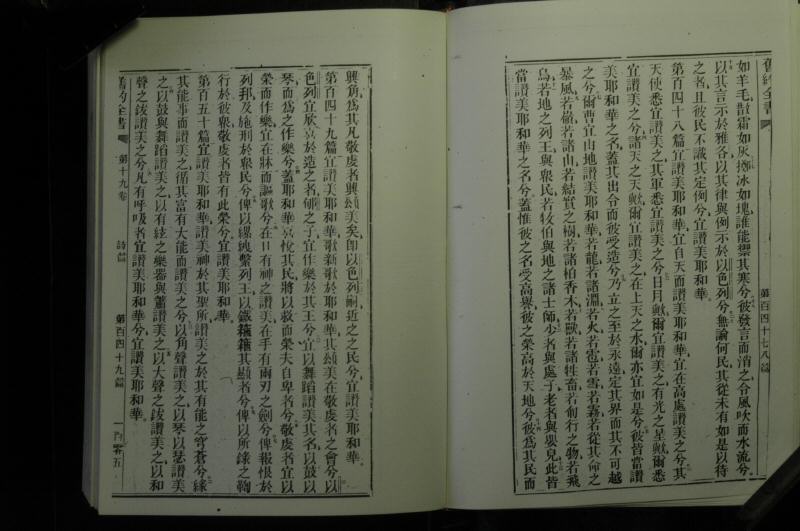 舊約全書
第百四十七八篇
如羊毛散霜如灰擲冰如塊誰能禦其寒兮彼發言而消之合風吹而水流兮
以其言示於雅各以其律與例示於以色列兮無論何民其從未有如是以待
之者且彼民不識其定例兮宜讚美耶和華
第百四十八篇宜讚美耶和華宜自天而讚美耶和華宜在高處讚美之兮其
天使悉宜讚美之其軍悉宜讚美之兮日月歟爾宜讚美之有光之星歟爾悉
宜讚美之兮諸天之天歟爾宜讚美之在上天之水爾亦宜如是兮彼皆當讚
美耶和華之名蓋其出令而彼受造兮乃立之至於永遠定其界而其不可越
之兮爾曹宜由地讚美耶和華若龍若諸淵若火若雹若雪若霧若從其命之
暴風若嶺若諸山若結實之樹若諸柏香木若獸若諸牲畜若匍行之物若飛
鳥若地之列王與衆民若牧伯與地之諸士師少者與處子老者與嬰兒此皆
當讚美耶和華之名兮蓋惟彼之名受高舉彼之榮高於天地兮彼爲其民而
興角爲其凡敬虔者興頌美矣卽以色列嗣近之之民兮宜讚美耶和華
第百四十九篇宜讚美耶和華歌新歌於耶和華其頌美在敬虔者之會兮以
色列宜欣喜於造之者郇之子宜作樂於其王兮宜以舞蹈讚美其名以鼓以
琴而爲之作樂兮蓋耶和華喜悅其民將以救而榮夫自卑者兮敬虔者宜以
榮而作樂宜在牀而謳歌兮在口有神之讚美在手有兩刃之劍兮俾報恨於
列邦及施刑於衆民兮俾以縲絏繫列王以鐵鏈其顯者兮俾以所錄之鞫
行於彼衆敬虔者皆有此榮兮宜讚美耶和華
第百五十篇宜讚美耶和華讚美神於其聖所讚美之於其有能之穹蒼兮緣
其能事而讚美之循其富有大能而讚美之兮以角聲讚美之以琴以瑟讚美
之以鼓與舞蹈讚美之以有絃之樂器與簫讚美之以大聲之鈸讚美之以和
聲之鈸讚美之兮凡有呼吸者宜讚美耶和華兮宜讚美耶和華
舊約全書
第十九卷
詩篇
第百四十九篇
一百零五